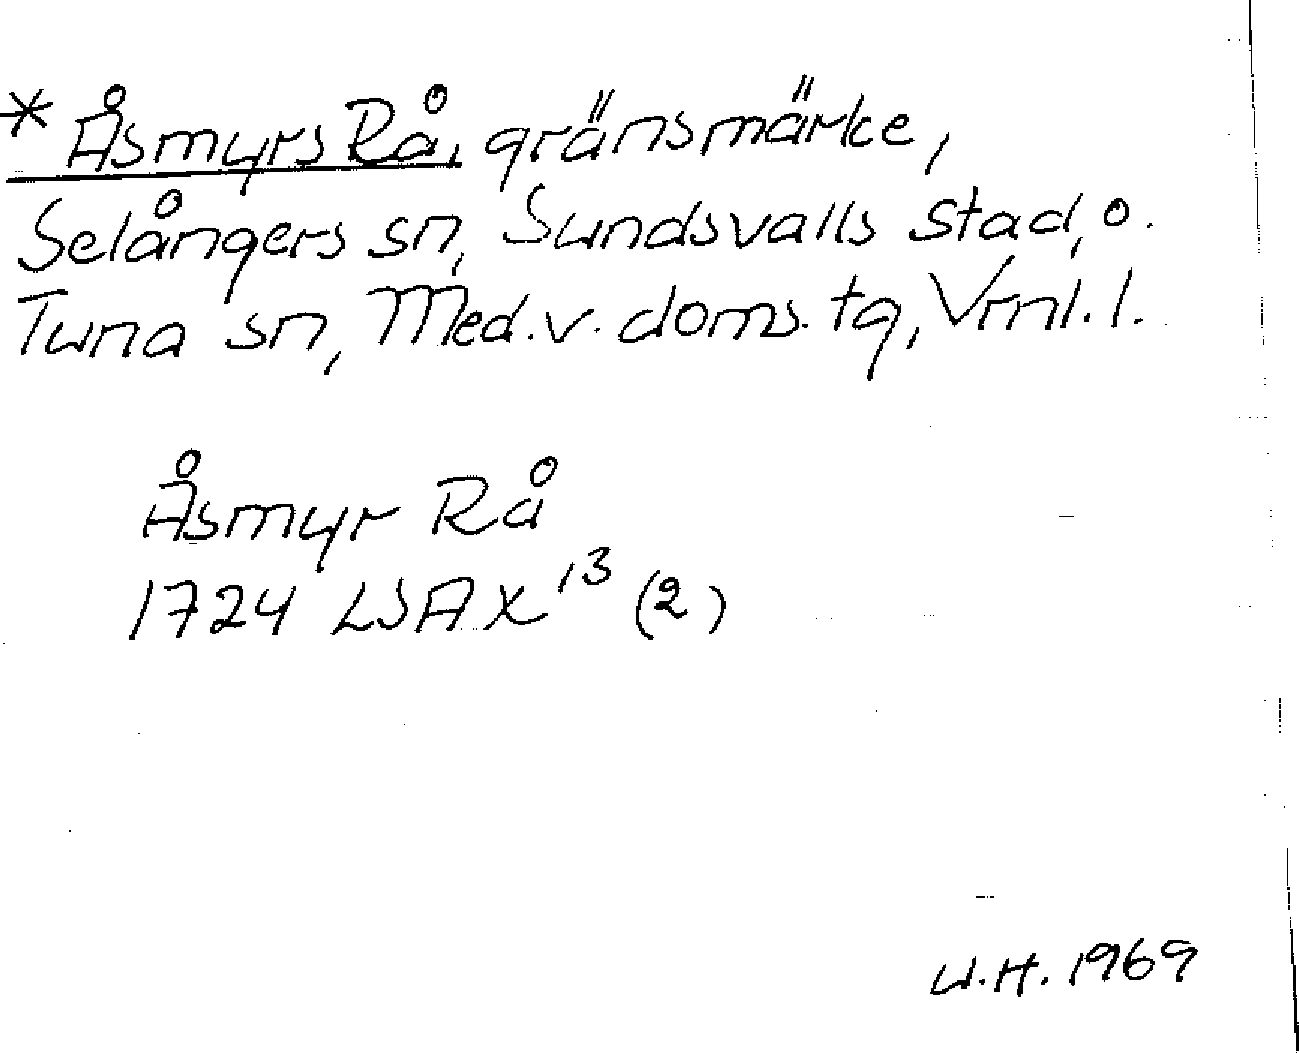 * Åsmyrs Rå, gränsmärke,
Selångers sn, Sundsvalls stad, o.
Tuna sn, Med. v. doms. tg, Vrnl. l.
Åsmyr Rå
1724 LSA X¹³ (2)
W.H. 1969